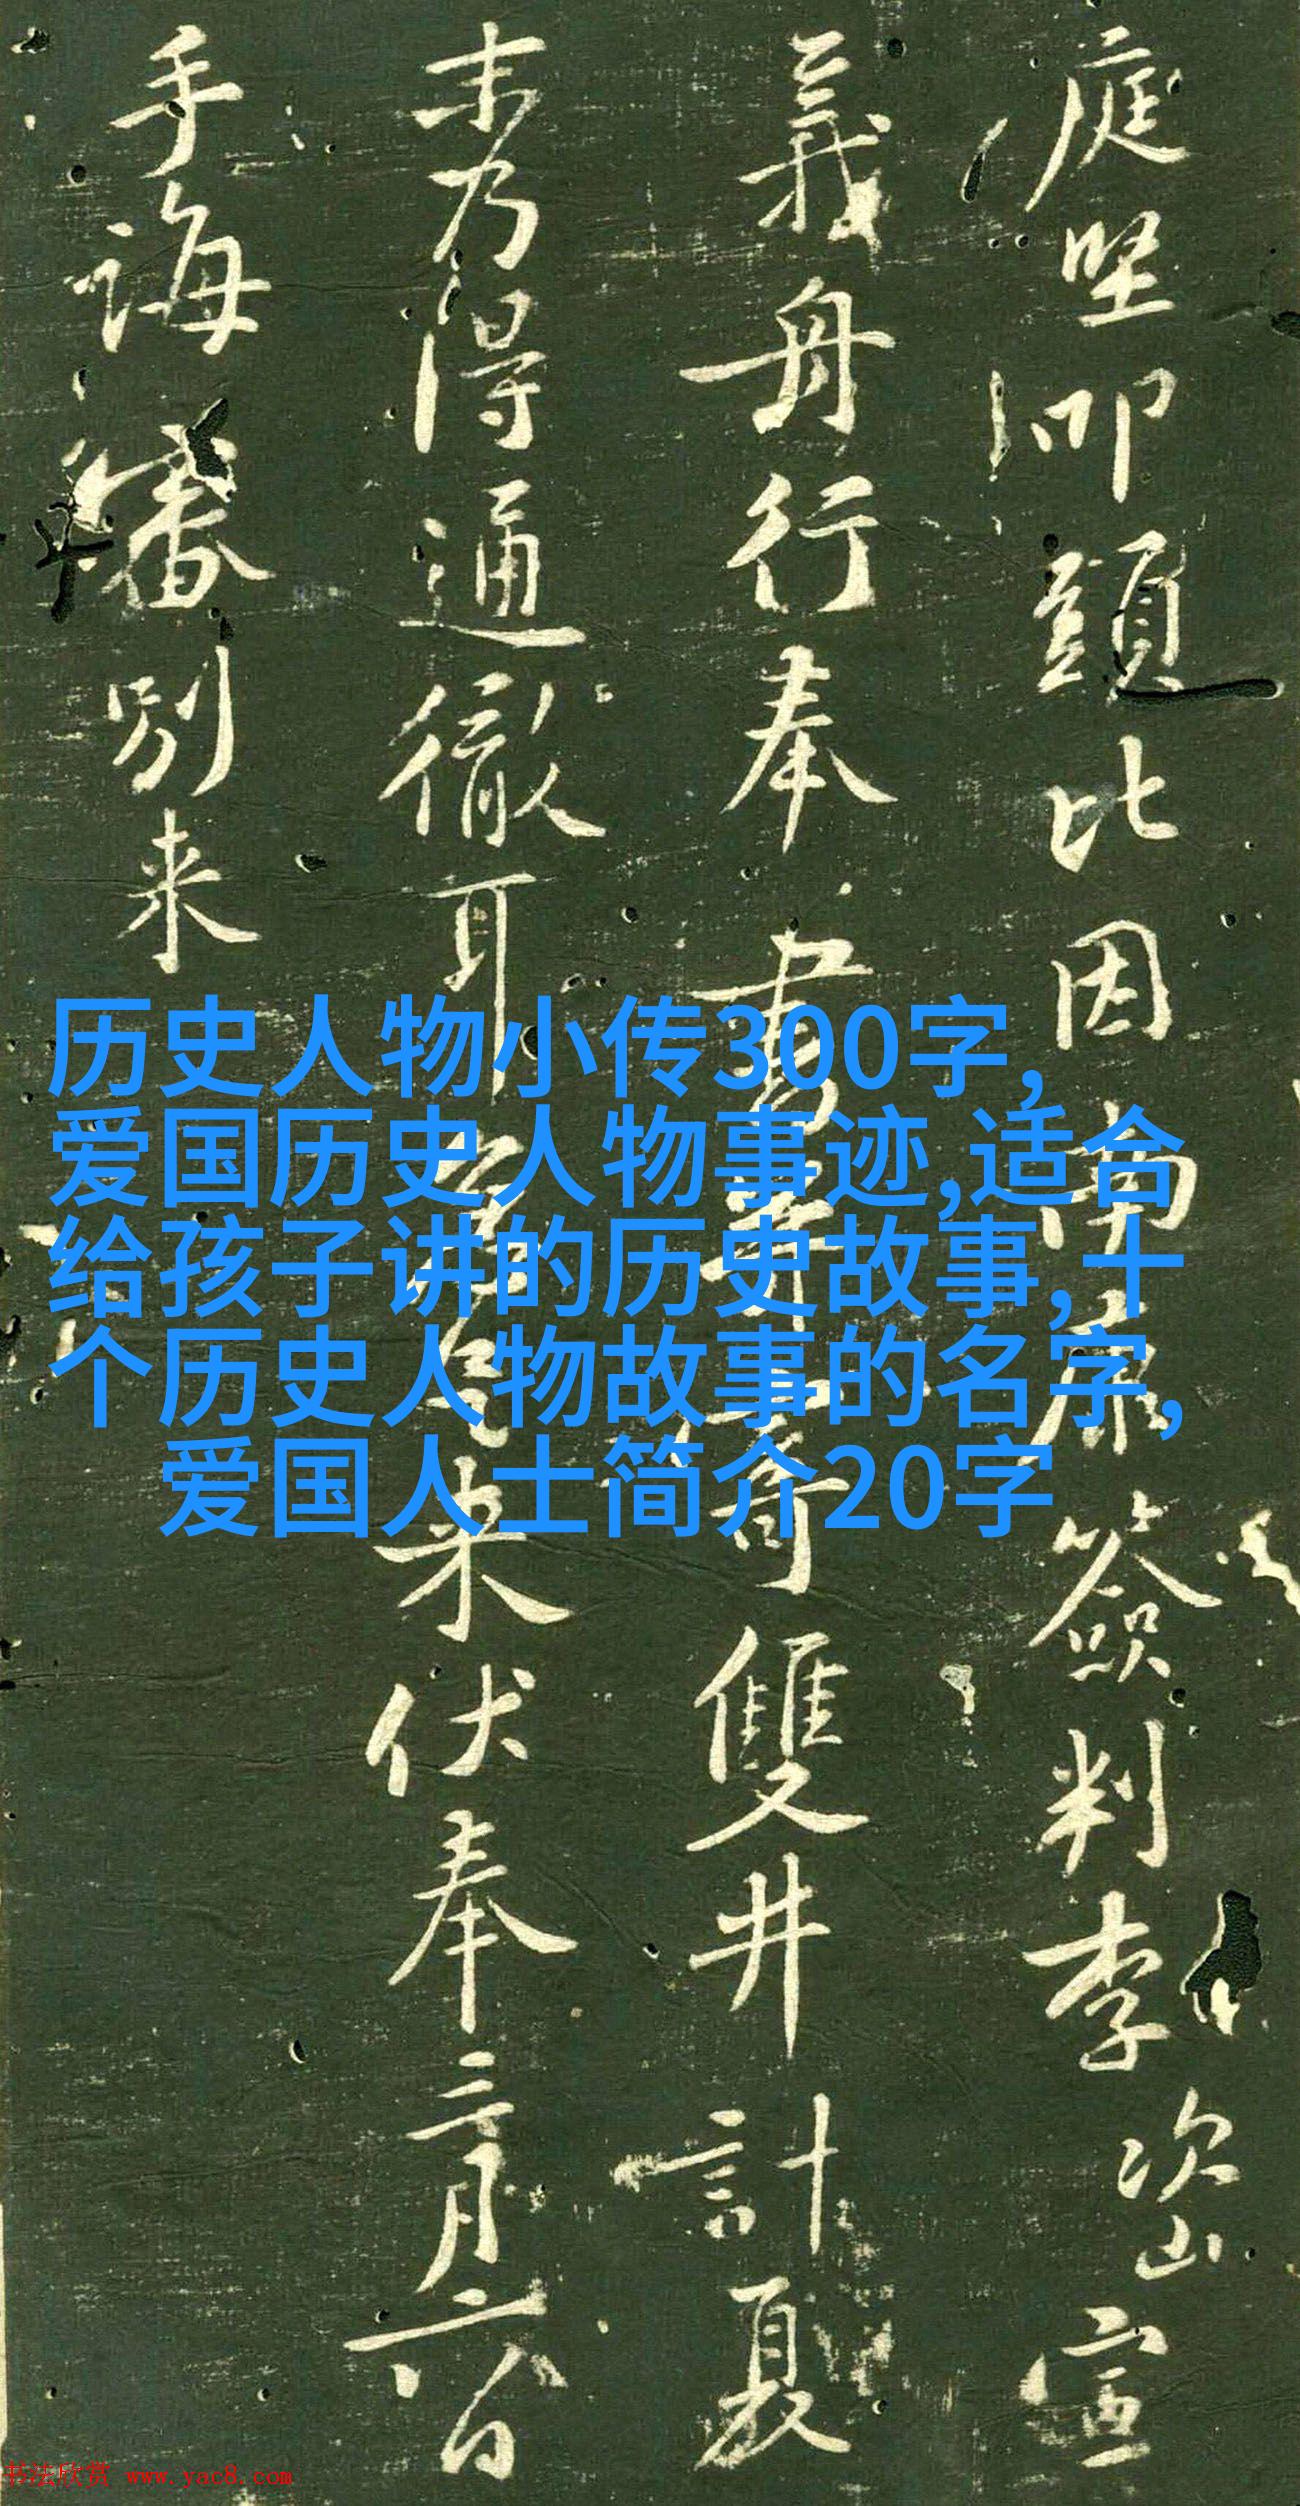 庭坚叩頭比因南康簽判李次山宣
義舟行奉書并寄雙井計夏
末乃得通徹耳
来伏奉三月六日
手誨審別来
历史人物小传300字,
爱国历史人物事迹,适合
给孩子讲的历史故事,十
个历史人物故事的名字,
爱国人士简介20字
书法欣赏 www.yac8.com